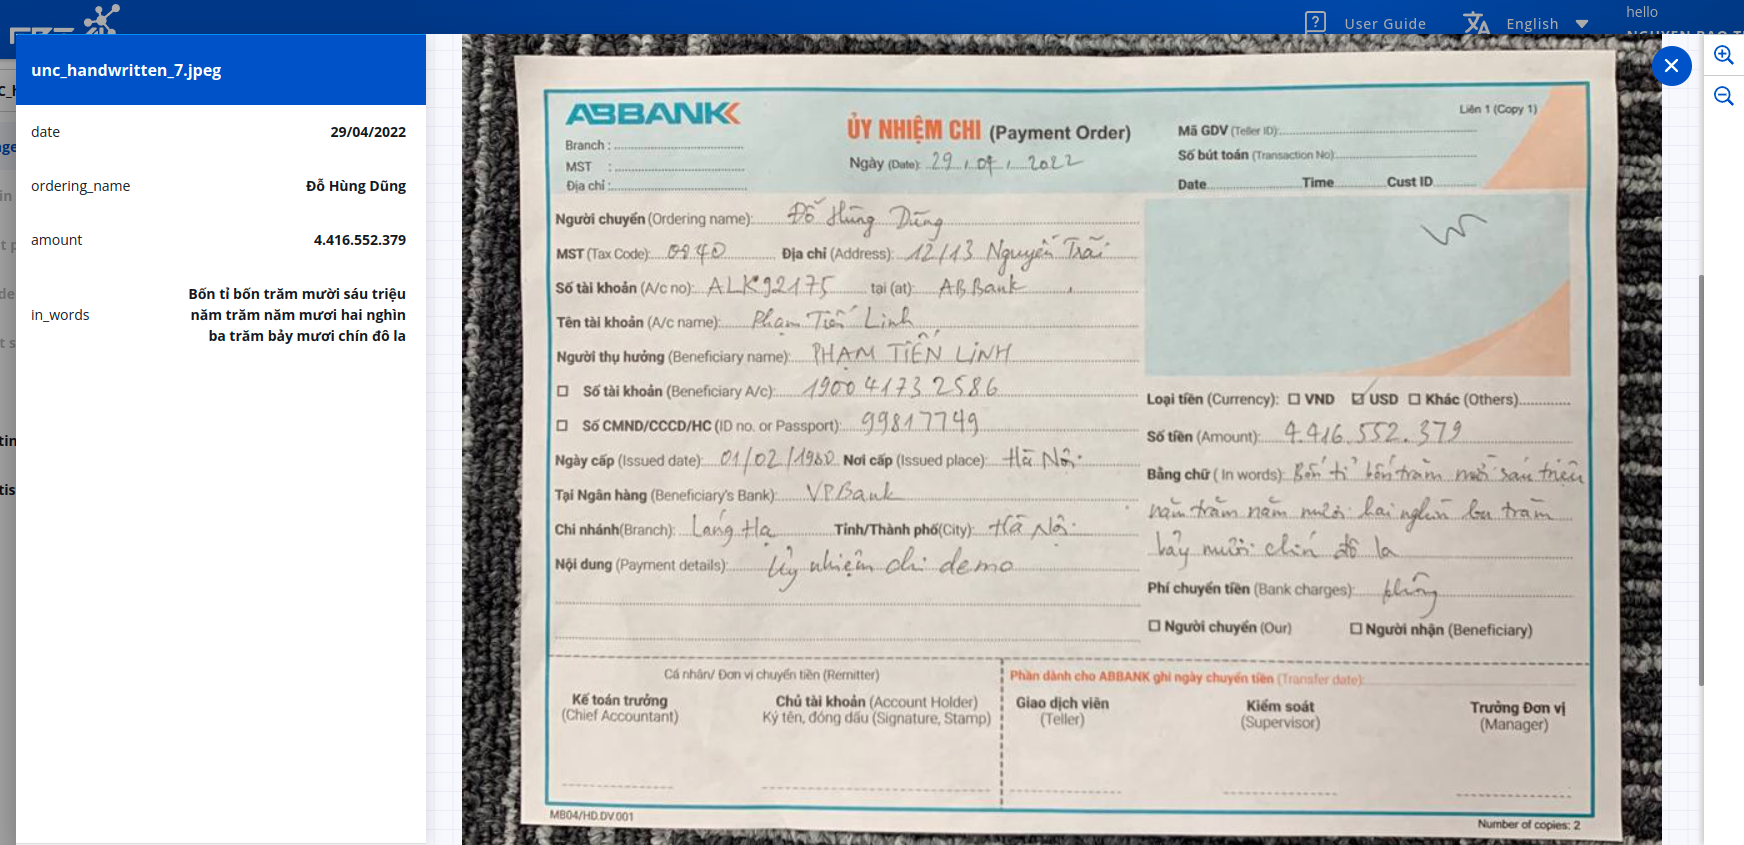 User Guide
English
hello
unc_handwritten_7.jpeg
date 29/04/2022
ordering_name Đỗ Hùng Dũng
amount 4.416.552.379
in_words Bốn tỉ bốn trăm mười sáu triệu
năm trăm năm mươi hai nghìn
ba trăm bảy mươi chín đô la
ABBANK
Liên 1 (Copy 1)
ỦY NHIỆM CHI (Payment Order)
Ngày (Date): 29 / 04 / 2022
Branch :
MST :
Địa chỉ :
Mã GDV (Teller ID):
Số bút toán (Transaction No)
Date Time Cust ID
Người chuyển (Ordering name): Đỗ Hùng Dũng
MST (Tax Code): 0940 Địa chỉ (Address): 12/13 Nguyễn Trãi
Số tài khoản (A/c no): ALK92175 tại (at): ABBank
Tên tài khoản (A/c name): Phạm Tiến Linh
Người thụ hưởng (Beneficiary name): PHẠM TIẾN LINH
Số tài khoản (Beneficiary A/c): 1900 4173 2586
Số CMND/CCCD/HC (ID no. or Passport): 99817749
Ngày cấp (Issued date): 01/02/1980 Nơi cấp (Issued place): Hà Nội
Tại Ngân hàng (Beneficiary's Bank): VPBank
Chi nhánh(Branch): Láng Hạ Tỉnh/Thành phố(City): Hà Nội
Nội dung (Payment details): Uỷ nhiệm chi demo
Loại tiền (Currency): VND USD Khác (Others)
Số tiền (Amount): 4.416.552.379
Bằng chữ ( In words): Bốn tỉ bốn trăm mười sáu triệu
năm trăm năm mươi hai nghìn ba trăm
bảy mươi chín đô la
Phí chuyển tiền (Bank charges): không
Người chuyển (Our) Người nhận (Beneficiary)
Cá nhân/ Đơn vị chuyển tiền (Remitter)
Kế toán trưởng
(Chief Accountant)
Chủ tài khoản (Account Holder)
Ký tên, đóng dấu (Signature, Stamp)
Phần dành cho ABBANK ghi ngày chuyển tiền (Transfer date):
Giao dịch viên
(Teller)
Kiểm soát
(Supervisor)
Trưởng Đơn vị
(Manager)
MB04/HD.DV.001
Number of copies: 2